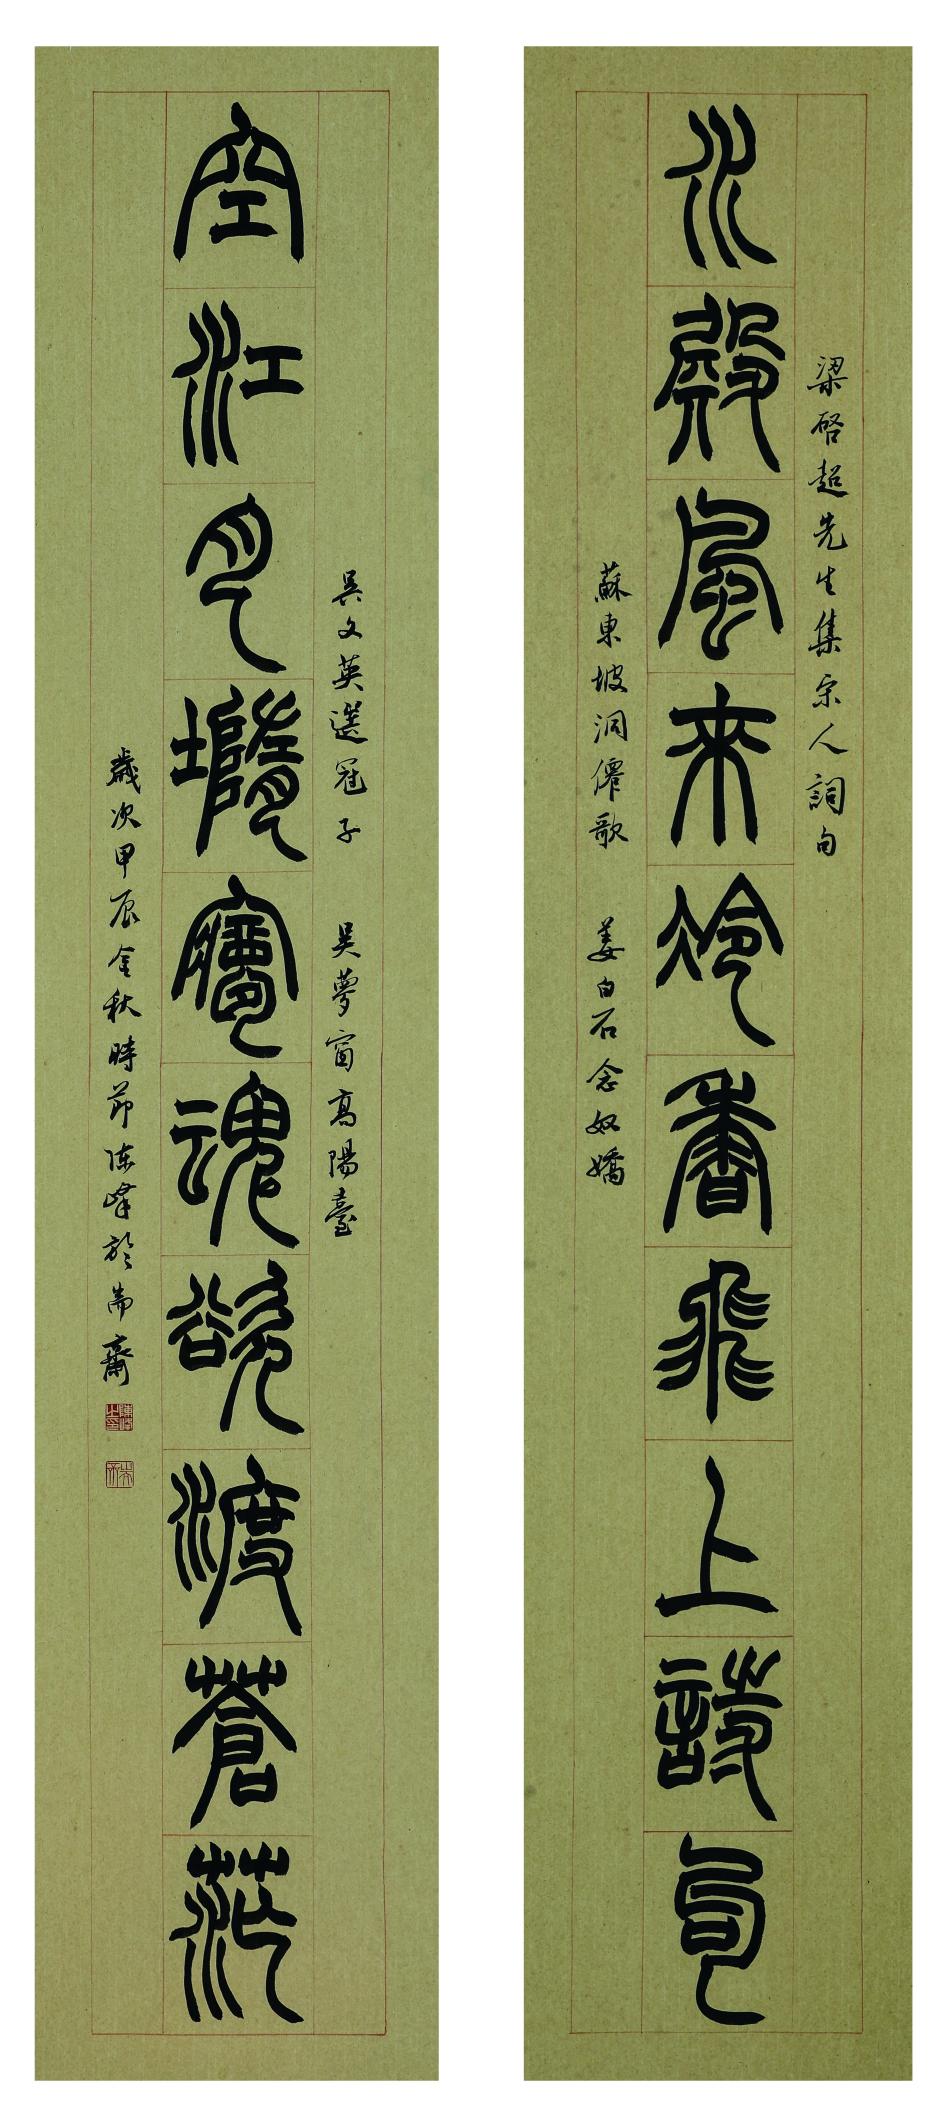 梁啓超先生集宋人詞句
水殿風來冷香飛上詩句
蘇東坡洞僊歌 姜白石念奴嬌
吳文英選冠子 吳夢窗高陽臺
空江月墮夢魂欲渡蒼茫
歲次甲辰金秋時節陳峰於耑齋
陳峰之印